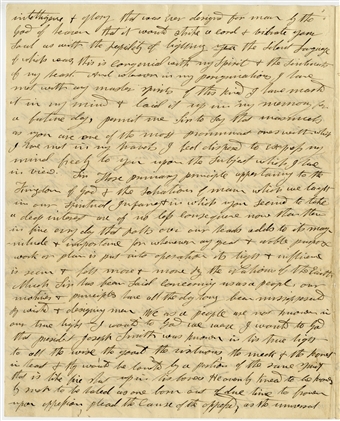 intelligence & glory that was ever designed for man by the
God of heaven that it would strike a cord & vibrate your
Soul with the rapidity of lightning upon the silent language
of which every this is congenial with my Spirit & the sentiments
of my heart And whenever in my perigrination, I have
met with my master spirits of this kind I have mark
it in my mind & laid it up in my memory for
a future day, permit me Sir to Say that inasmuch
as you are one of the most prominent ones with which
I have met in my travels I feel disposed to express my
mind freely to you upon the Subject which I have
in view. For those primary principle appertaining to the
Kingdom of God & the Salvation of man which we taught
in our Spiritual in which you seemed to take
a deep interest are of no less consequence now than then
in fine every day that rolls over our heads adds to its mag
nitude & importance for whenever any great & noble purpose
work or plan is put into operation its light & influence
is seen & felt more & more by the of the Earth
Much Sir has been Said concerning us as a people our
motives & principles have all the day long been misrepresented
by wicked & designing men We as a people are not known in
our true light I would to God we were I would to God
that president Joseph Smith was known in his true light
to all the wise the great the virtuous the meek & the honest
in heart & by a portion of the same Spirit
that is like fire shut up in his bones Heavenly bread to the hungry
by not to be hated as one born out of due time to frown
upon oppression plead the Cause of the oppressed, as the universal